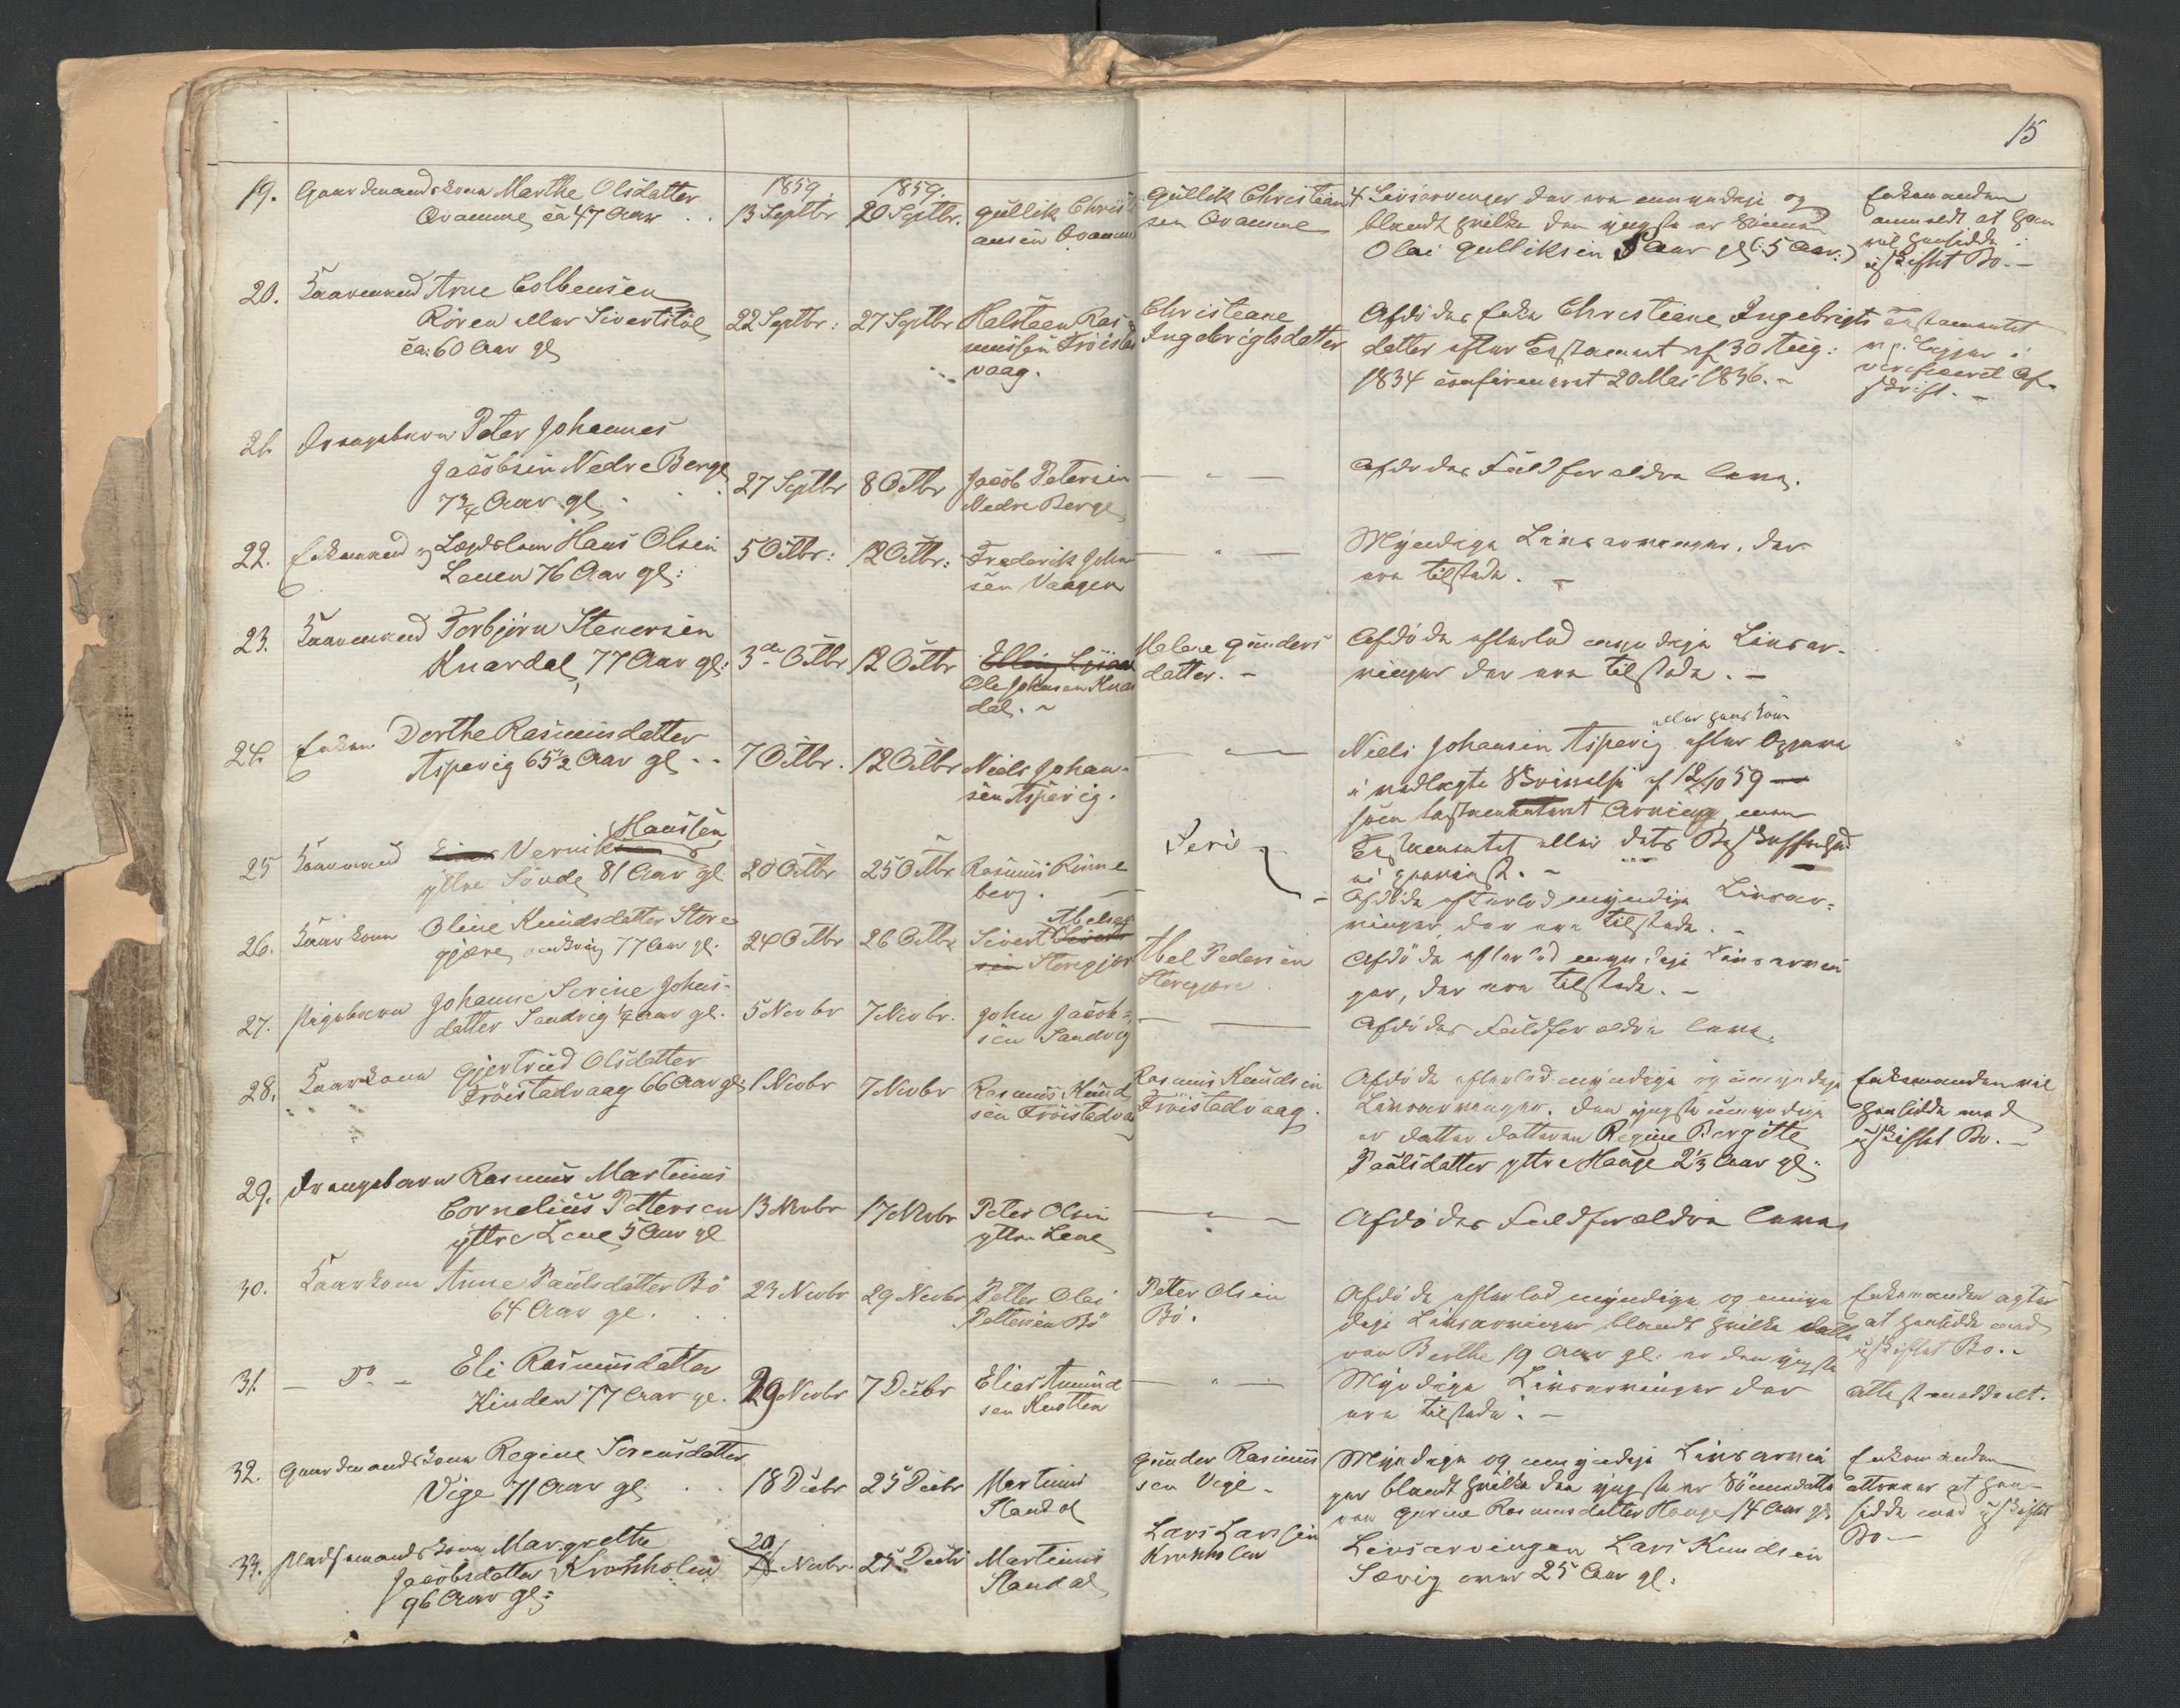 15
19. Gaardmandskone Marthe Olsdatter
Qvamme ca 47 Aar
1859.
13 Septbr
1859.
20 Septbr.
Gullik Christi
ansen Qvamme
Gullik Christian
sen Qvamme
4 Livsarvinger der ere umyndige og
blandt hvilke den yngste er Simon
Olai Gulliksen 5 Aar gl (: 5 Aar :)
Enkemanden
anmeldt at han
vil hensidde i
uskiftet Bo. -
20. Kaarmand Arne Colbensen
Rören eller Sivertstöl
ca: 60 Aar gl
22 Septbr:
27 Septbr
Halsteen Ras
mussen Fröistad
vaag.
Christiane
Ingebrigtsdatter
Afdödes Enke Christiane Ingebrigts
datter efter Testament af 30 Aug:
1834 confirmeret 20 Mai 1836. -
Testamentet
ligger i
verificeret Af-
skrift. -
21. Drengebarn Peter Johannes
Jacobsen Nedre Berge
7 3/4 Aar gl
27 Septbr
8 Octbr
Jacob Petersen
Nedre Berge
— " —
Afdödes Fuldforældre leve.
22. Enkemand og Lægdslem Hans Olsen
Leuen 76 Aar gl:
5 Octbr:
12 Octbr:
Frederik John
sen Vaagen
— " —
Myndige Livsarvinger, der
ere tilstede. -
23. Kaarmand Torbjörn Stenersen
Knardal, 77 Aar gl:
3die Octbr
12 Octbr
Ole Johnsen Knar
dal. -
Malene Gunders
datter. -
Afdöde efterlod myndige Livsar-
vinger der ere tilstede. -
24. Enken Dorthe Rasmusdatter
Aspevig 65 1/2 Aar gl
7 Octbr.
12 Octbr
Niels Johan-
sen Aspevig.
— " —
eller hans Kone
Niels Johansen Aspevig efter Opgave
i vedlagte Skrivelse af 12/10 59 —
som testamenteret Arving, men
Testamentet eller dets Beskaffenhed
ei
25 Kaarmand Vernik Hanssen
yttre Sövde 81 Aar gl
20 Octbr
25 Octbr
Rasmus Rinne
berg.
Afdöde efterlod myndige Livsar-
vinger, der ere tilstede. -
26. Kaarkone Oline Knudsdatter Store
gjære, omkring 77 Aar gl.
24 Octbr
26 Octbr
Sivert Abelsen
Storegjær
Abel Pedersen
Storegjære
Afdöde efterlod myndige Livsarvin
ger, der ere tilstede. -
27. Pigebarn Johanne Serine Johns-
datter Sandvig 1/4 Aar gl.
5 Novbr
7 Novbr.
John Jacob-
sen Sandvig
Afdödes Fuldforældre leve.
28. Kaarkone Gjertrud Olsdatter
Fröistadvaag 66 Aar gl.
1 Novbr
7 Novbr
Rasmus Knud
sen Fröistadvaa
Rasmus Knudsen
Fröistadvaag.
Afdöde efterlod myndige og umyndige
Livsarvinger. Den yngste umyndige
er Datter Datteren Regine Bergitte
Paulsdatter yttre Hauge 2 1/3 Aar gl.
Enkemanden vil
hensidde med
uskiftet Bo. -
29. Drengebarn Rasmus Martinus
Cornelius Pettersen
yttre Lene 5 Aar gl
13 Novbr
17 Novbr
Peter Olsen
yttre Lene
— " —
Afdödes Fuldforældre leve
30. Kaarkone Anne Paulsdatter Bö
64 Aar gl.
23 Novbr
29 Novbr
Petter Olai
Pettersen Bö
Peter Olsen
Bö.
Afdöde efterlod myndige og umyn
dige Livsarvinger blandt hvilke Datte
ren Berthe 19 Aar gl: er den yngste
Enkemanden agter
at hensidde med
uskiftet Bo. -
31. — Do — Eli Rasmusdatter
Kinden 77 Aar gl.
29 Novbr
7 Decbr
Elias Amund
sen Knotten
— " —
Myndige Livsarvinger der
ere tilstede. -
Attest meddeelt.
32. Gaardmandskone Regine Sörensdatter
Vige 71 Aar gl.
18 Decbr
25 Decbr
Martinus
Standal
Gunder Rasmus
sen Vige -
Myndige og umyndige Livsarvin
ger blandt hvilke den yngste er Sönnedatte
ren Gurine Rasmusdatter Hauge 14 Aar gl.
Enkemanden
attraaer at hen-
sidde med uskiftet
Bo -
33. Pladsemandskone Margrethe
Jacobsdatter Krohnholm
96 Aar gl:
20
Novbr.
25 Decbr
Martinus
Standal
Lars Larssen
Krohnholm
Livsarvingen Lars Knudsen
Sævig over 25 Aar gl.